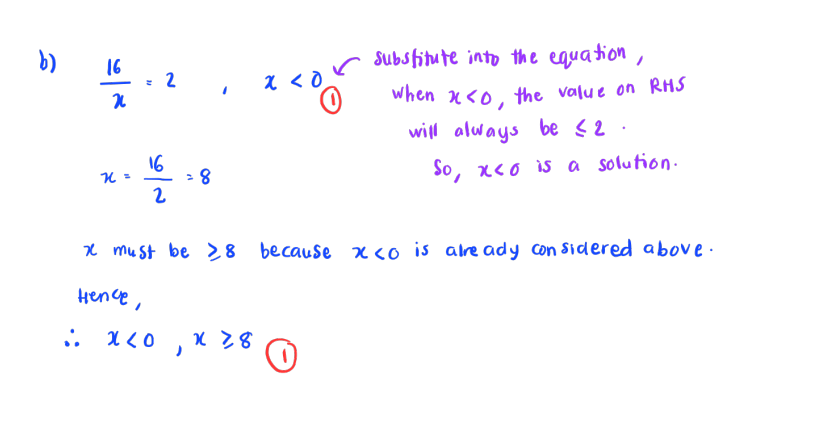 b) 16/x = 2 , x < 0 ①
substitute into the equation,
when x<0, the value on RHS
will always be ≤ 2.
So, x<0 is a solution.
x = 16/2 = 8
x must be ≥8 because x<0 is already considered above.
Hence,
∴ x<0 , x ≥8 ①